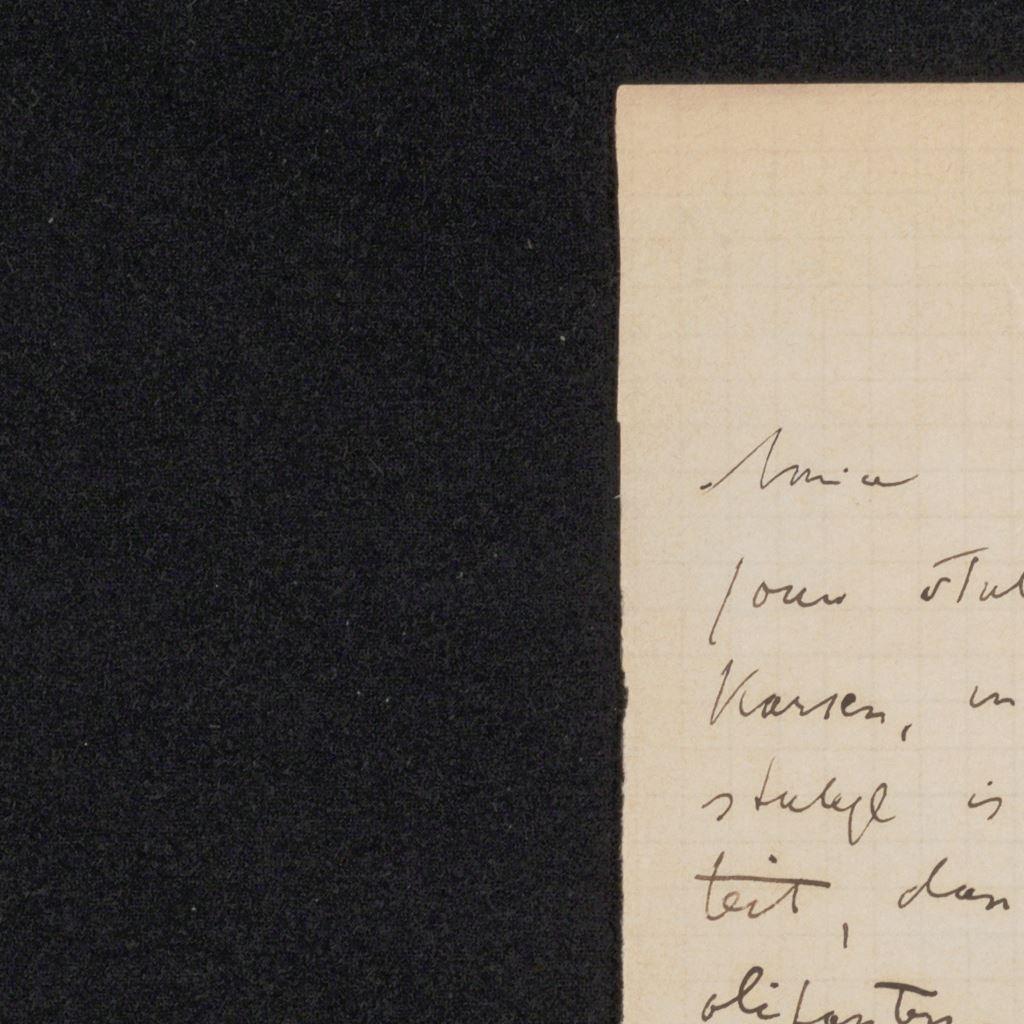 Amice
jouw stuk
Karsen, in
stukje is
teit, dan
olifanten